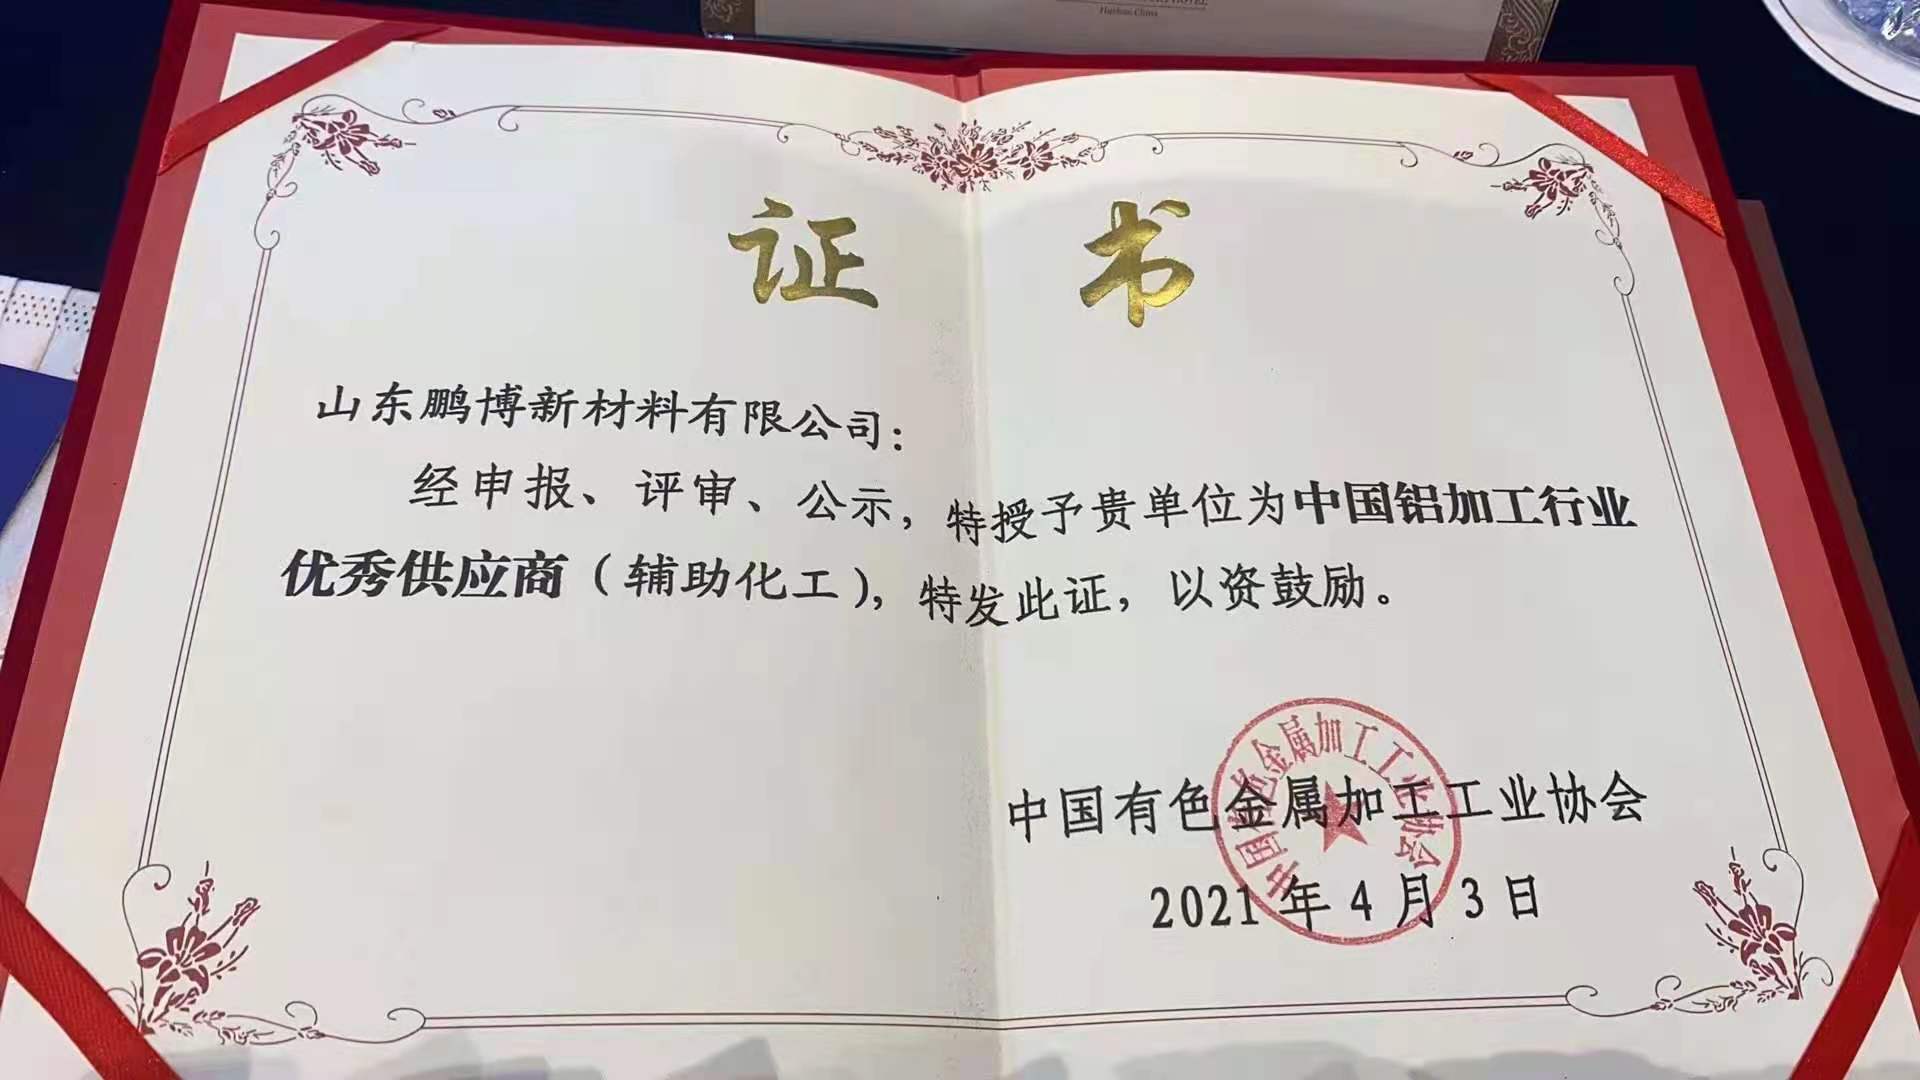 Huizhou China
证 书
山东鹏博新材料有限公司：
经申报、评审、公示，特授予贵单位为中国铝加工行业
优秀供应商（辅助化工），特发此证，以资鼓励。
中国有色金属加工工业协会
中国有色金属加工工业协会
2021年4月3日